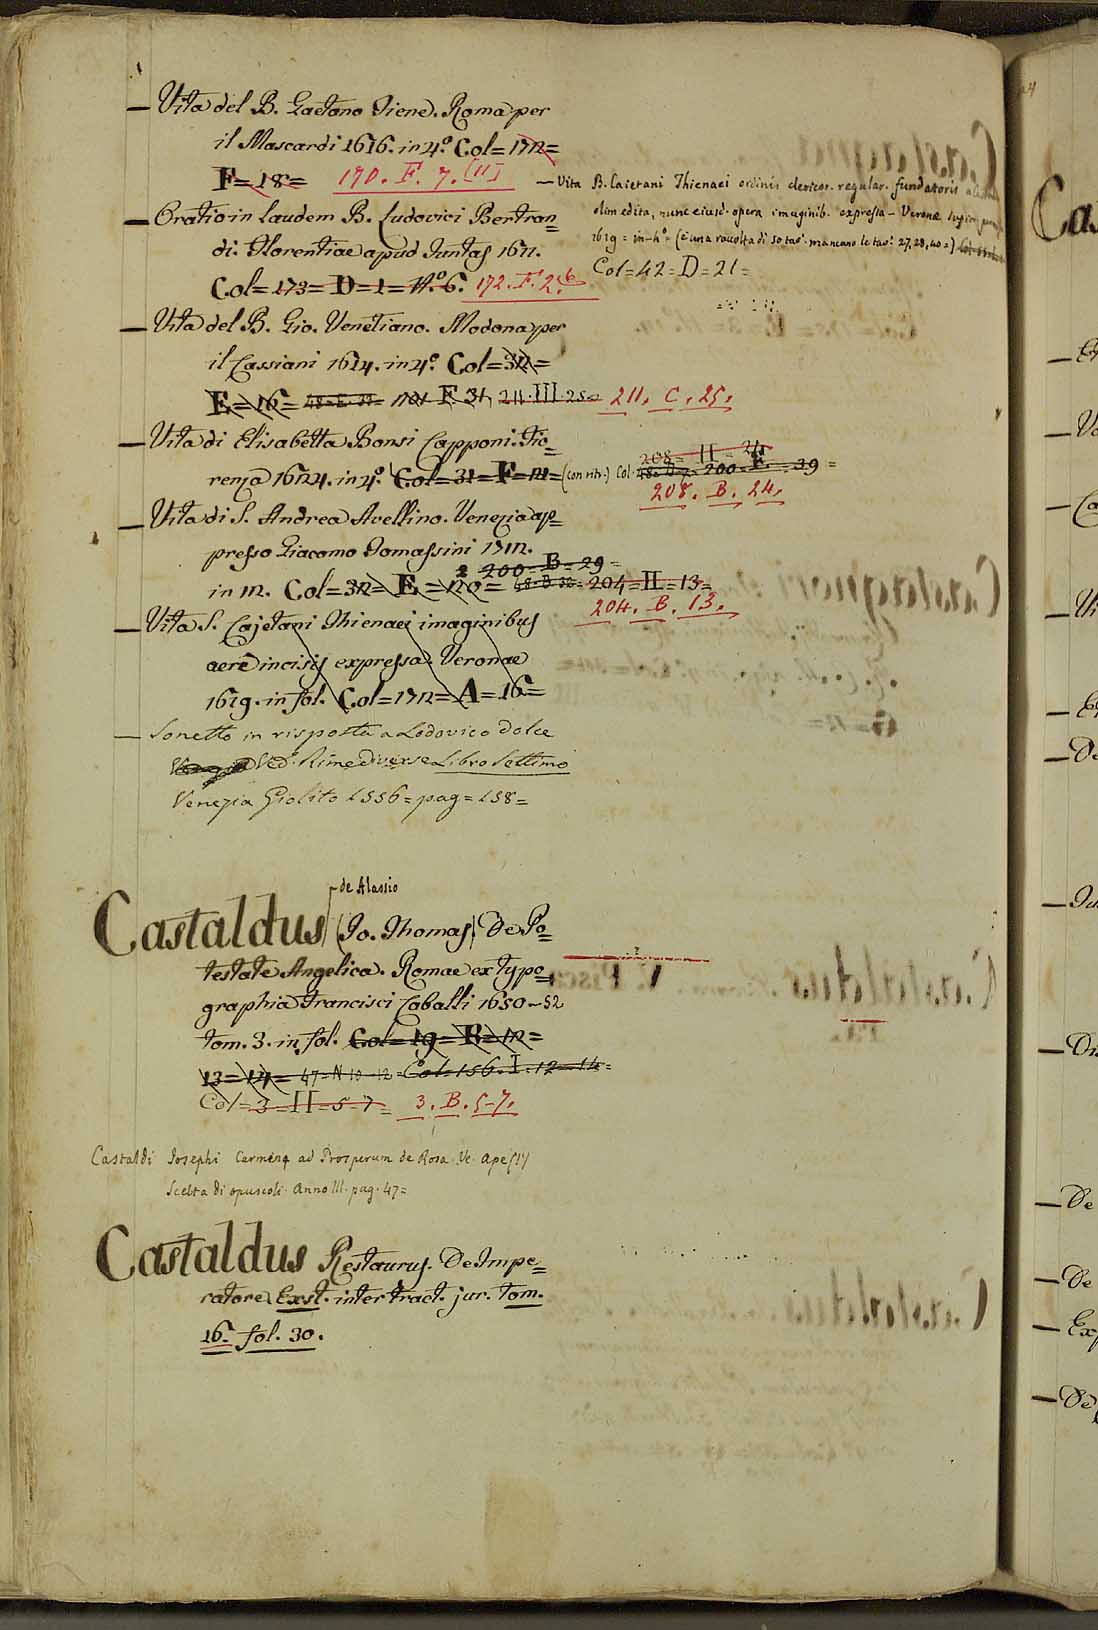 — Vita del B. Gaetano Tiene. Roma per
il Mascardi 1616. in 4.º Col= 172=
F=18= 170. F. 7. (11)
— Vita B. Caietani Thienaei ordinis clericor. regular. fundatoris
olim edita, nunc eiusd. opera imaginib. expressa – Veronae
1619 = in-4º = (è una raccolta di 50 tav. mancano le tav. 27, 28, 40 =)
Col=42=D=21=
— Oratio in laudem B. Ludovici Bertran=
di. Florentiae apud Juntas 1611.
Col=173=D=1=Nº.6. 172. F. 2.6
— Vita del B. Gio. Venetiano. Modona per
il Cassiani 1614. in 4.º Col=32=
E=16= 172 F 31, 211.III.25= 211. C. 25.
— Vita di Elisabetta Bonsi Capponi. Fio=
renza 1624. in 4.º Col=31=F=12=(con ritr.) Col. 48=D=7=200=F.=39=
208=II=24
208. B. 24.
— Vita di S. Andrea Avellino. Venezia ap=
presso Giacomo Tomassini 1712.
200=B=29=
in 12. Col=32=E=120= 48-D-32=204=II=13=
204. B. 13.
— Vita S. Cajetani Thienaei imaginibus
aere incisis expressa. Veronae
1619. in fol. Col=172=A=16=
— Sonetto in risposta a Lodovico Dolce
Ved. Rime diverse Libro Settimo
Venezia Giolito 1556=pag=158=
de Alassio
Castaldus (Jo. Thomas) De Po=
testate Angelica. Romae ex typo=
graphia Francisci Caballi 1650–52
tom. 3. in fol. Col=19=B=12=
13=14= 47=N 10-12=Col=156.I.12=14=
Col=3=II=5-7= 3. B. 5-7.
Castaldi Josephi Carmina ad Prosperum de Rosa. Ve. Ape
Scelta di opuscoli. Anno III. pag. 47=
Castaldus Restaurus. De Impe=
ratore Exst. inter tract. jur. Tom.
16. fol. 30.